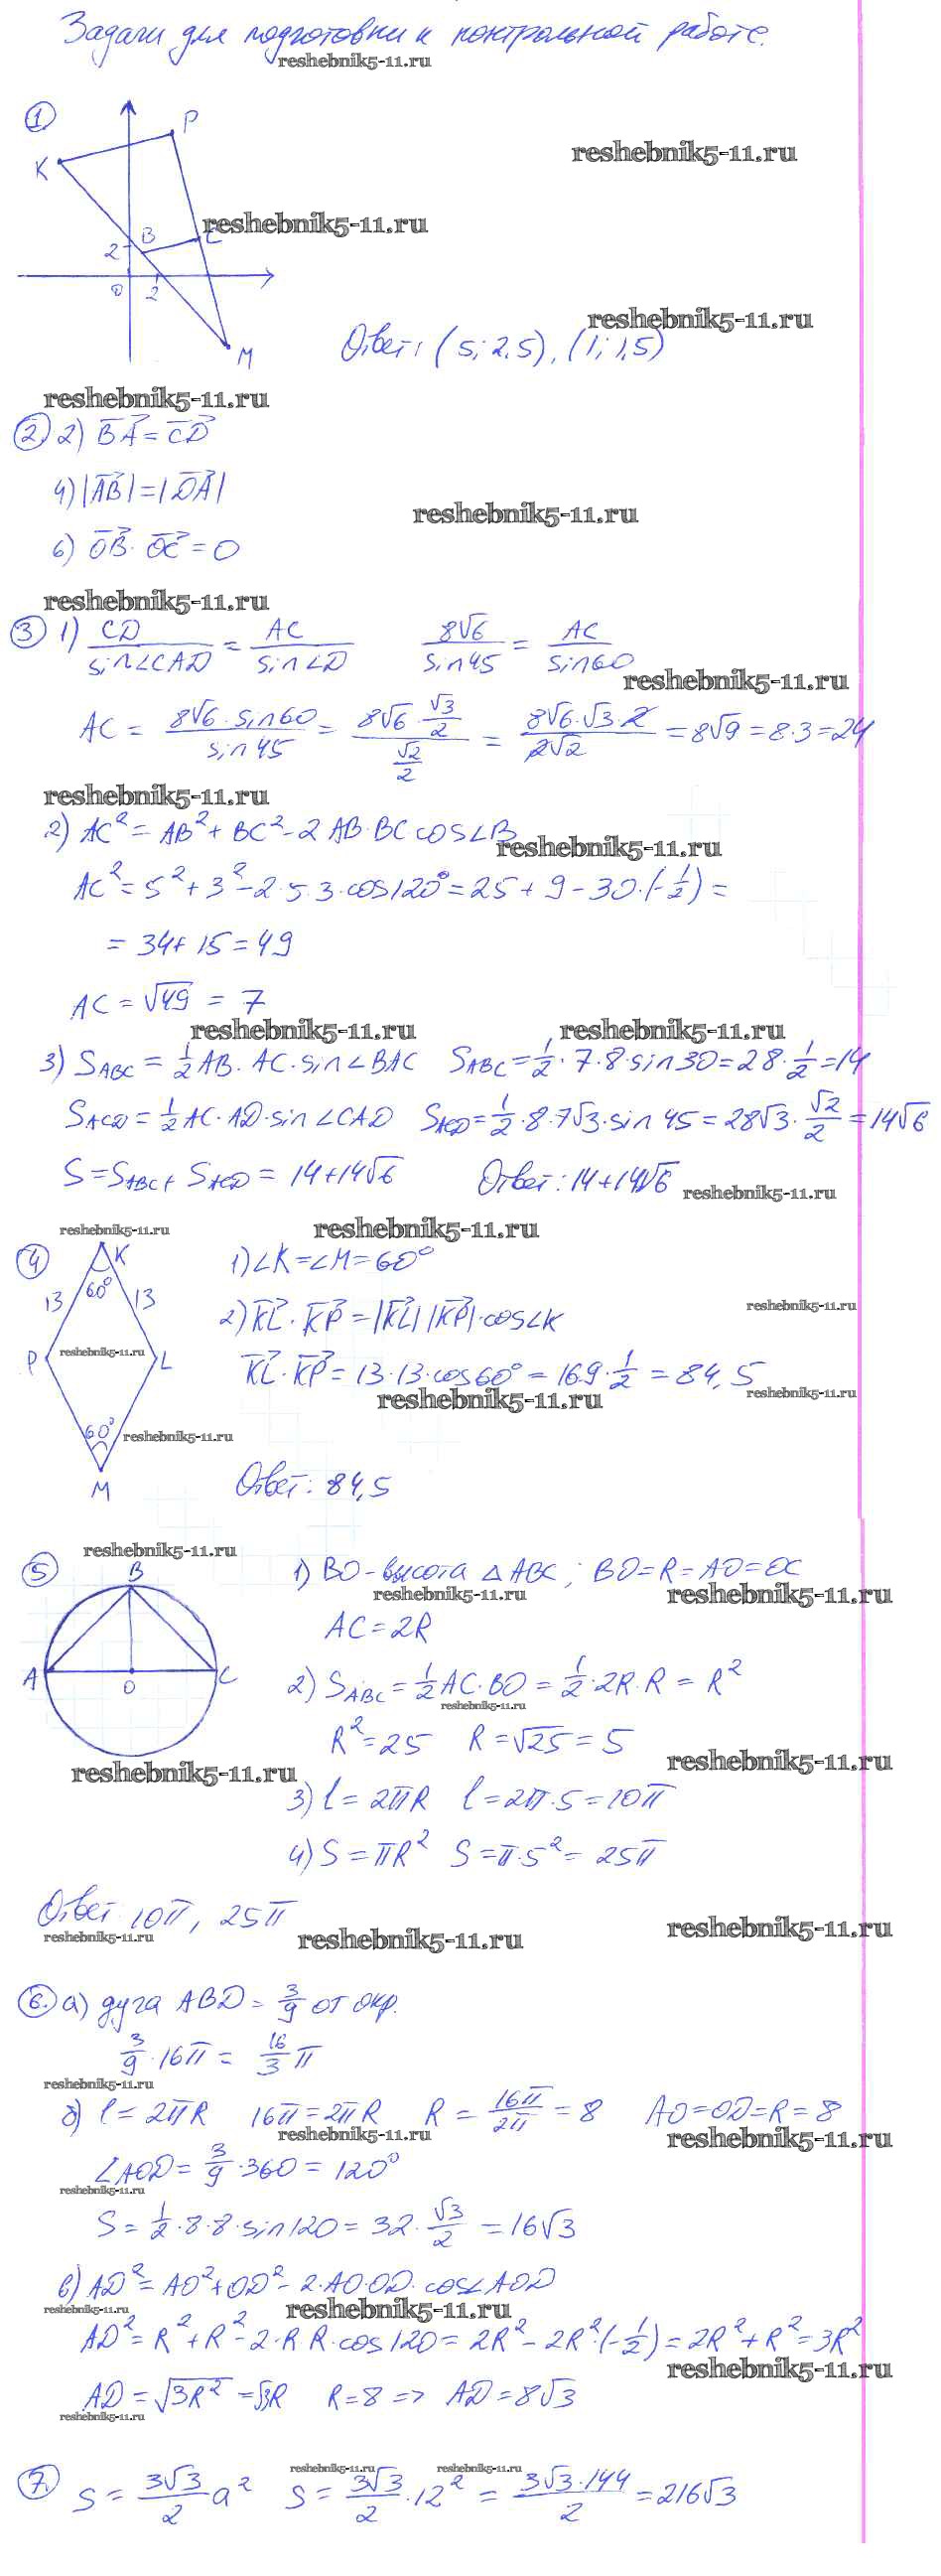 Задачи для подготовки к контрольной работе.
reshebnik5-11.ru
1
P
K
reshebnik5-11.ru
reshebnik5-11.ru
B
2
0
2
reshebnik5-11.ru
M
Ответ: (5; 2,5), (1; 1,5)
reshebnik5-11.ru
2 2) BA = CD
4) |AB| = |DA|
reshebnik5-11.ru
6) OB · OC = 0
reshebnik5-11.ru
3 1) CD/sin∠CAD = AC/sin∠D 8√6/sin45 = AC/sin60
reshebnik5-11.ru
AC = 8√6 · sin60/sin45 = (8√6 · √3/2)/(√2/2) = 8√6·√3·2/2√2 = 8√9 = 8·3 = 24
reshebnik5-11.ru
2) AC² = AB² + BC² - 2 AB · BC cos∠B
reshebnik5-11.ru
AC² = 5² + 3² - 2·5·3·cos120° = 25 + 9 - 30·(-1/2) =
= 34 + 15 = 49
AC = √49 = 7
reshebnik5-11.ru reshebnik5-11.ru
3) S ABC = 1/2 AB · AC · sin∠BAC S ABC = 1/2 · 7 · 8 · sin30 = 28 · 1/2 = 14
S ACD = 1/2 AC · AD · sin∠CAD S ACD = 1/2 · 8 · 7√3 · sin45 = 28√3 · √2/2 = 14√6
S = S ABC + S ACD = 14 + 14√6 Ответ: 14 + 14√6
reshebnik5-11.ru
reshebnik5-11.ru reshebnik5-11.ru
4 K 1) ∠K = ∠M = 60°
60°
13 13
reshebnik5-11.ru
2) KL · KP = |KL| |KP| · cos∠K
P reshebnik5-11.ru L
KL · KP = 13 · 13 · cos60° = 169 · 1/2 = 84,5
reshebnik5-11.ru reshebnik5-11.ru
60° reshebnik5-11.ru
M
Ответ: 84,5
reshebnik5-11.ru
5 B 1) BO - высота △ABC; BO = R = AO = OC
reshebnik5-11.ru reshebnik5-11.ru
AC = 2R
A O C
2) S ABC = 1/2 AC · BO = 1/2 · 2R · R = R²
reshebnik5-11.ru
R² = 25 R = √25 = 5
reshebnik5-11.ru reshebnik5-11.ru
3) l = 2πR l = 2π·5 = 10π
4) S = πR² S = π·5² = 25π
Ответ 10π, 25π
reshebnik5-11.ru reshebnik5-11.ru reshebnik5-11.ru
6. а) дуга ABD = 3/9 от окр.
3/9 · 16π = 16/3 π
reshebnik5-11.ru
б) l = 2πR 16π = 2πR R = 16π/2π = 8 AO = OD = R = 8
reshebnik5-11.ru reshebnik5-11.ru
∠AOD = 3/9 · 360 = 120°
reshebnik5-11.ru
S = 1/2 · 8 · 8 · sin120 = 32 · √3/2 = 16√3
в) AD² = AO² + OD² - 2·AO·OD · cos∠AOD
reshebnik5-11.ru reshebnik5-11.ru
AD² = R² + R² - 2·R·R·cos120 = 2R² - 2R²·(-1/2) = 2R² + R² = 3R²
reshebnik5-11.ru
AD = √3R² = √3R R = 8 => AD = 8√3
reshebnik5-11.ru
reshebnik5-11.ru reshebnik5-11.ru
7. S = 3√3/2 a² S = 3√3/2 · 12² = 3√3·144/2 = 216√3